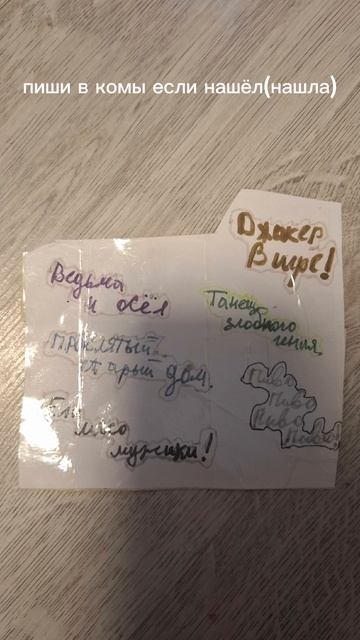 пиши в комы если нашёл(нашла)
Джокер
В игре!
Ведьма
и осёл
Танец
злобного
гения.
Проклятый
старый дом.
мясо
мужики!
Пиво
Пиво
Пиво
Пиво!